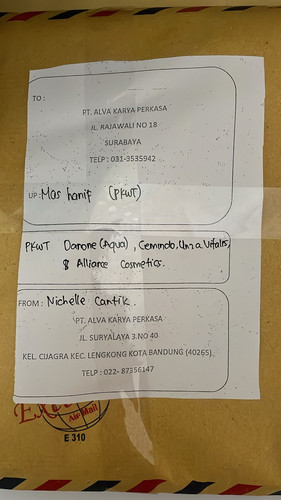 TO :
PT. ALVA KARYA PERKASA
JL. RAJAWALI NO 18
SURABAYA
TELP : 031-3535942
UP : Mas hanif (PKWT)
PKWT Danone (Aqua), Cemindo, Unza Vitalis,
& Alliance Cosmetics.
FROM : Nichelle Cantik.
PT. ALVA KARYA PERKASA
JL. SURYALAYA 3 NO 40
KEL. CIJAGRA KEC. LENGKONG KOTA BANDUNG (40265).
TELP : 022- 87356147
Air Mail
E 310